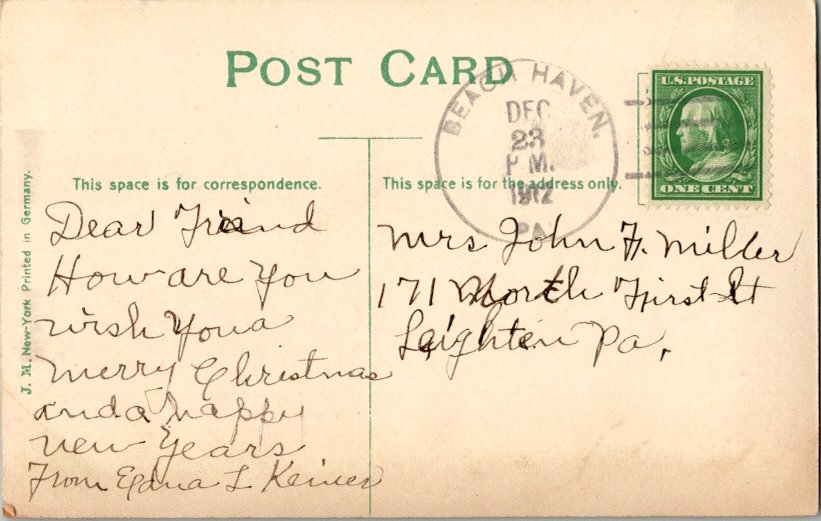 POST CARD
BEACH HAVEN.
DEC
23
P M.
1912
PA
U.S.POSTAGE
ONE CENT
This space is for correspondence.
This space is for the address only.
J. M. New-York Printed in Germany.
Dear Friend
How are you
wish you a
merry Christmas
and a happy
new years
From Edna L
Mrs John F. Miller
171 North First St
Leighten Pa.